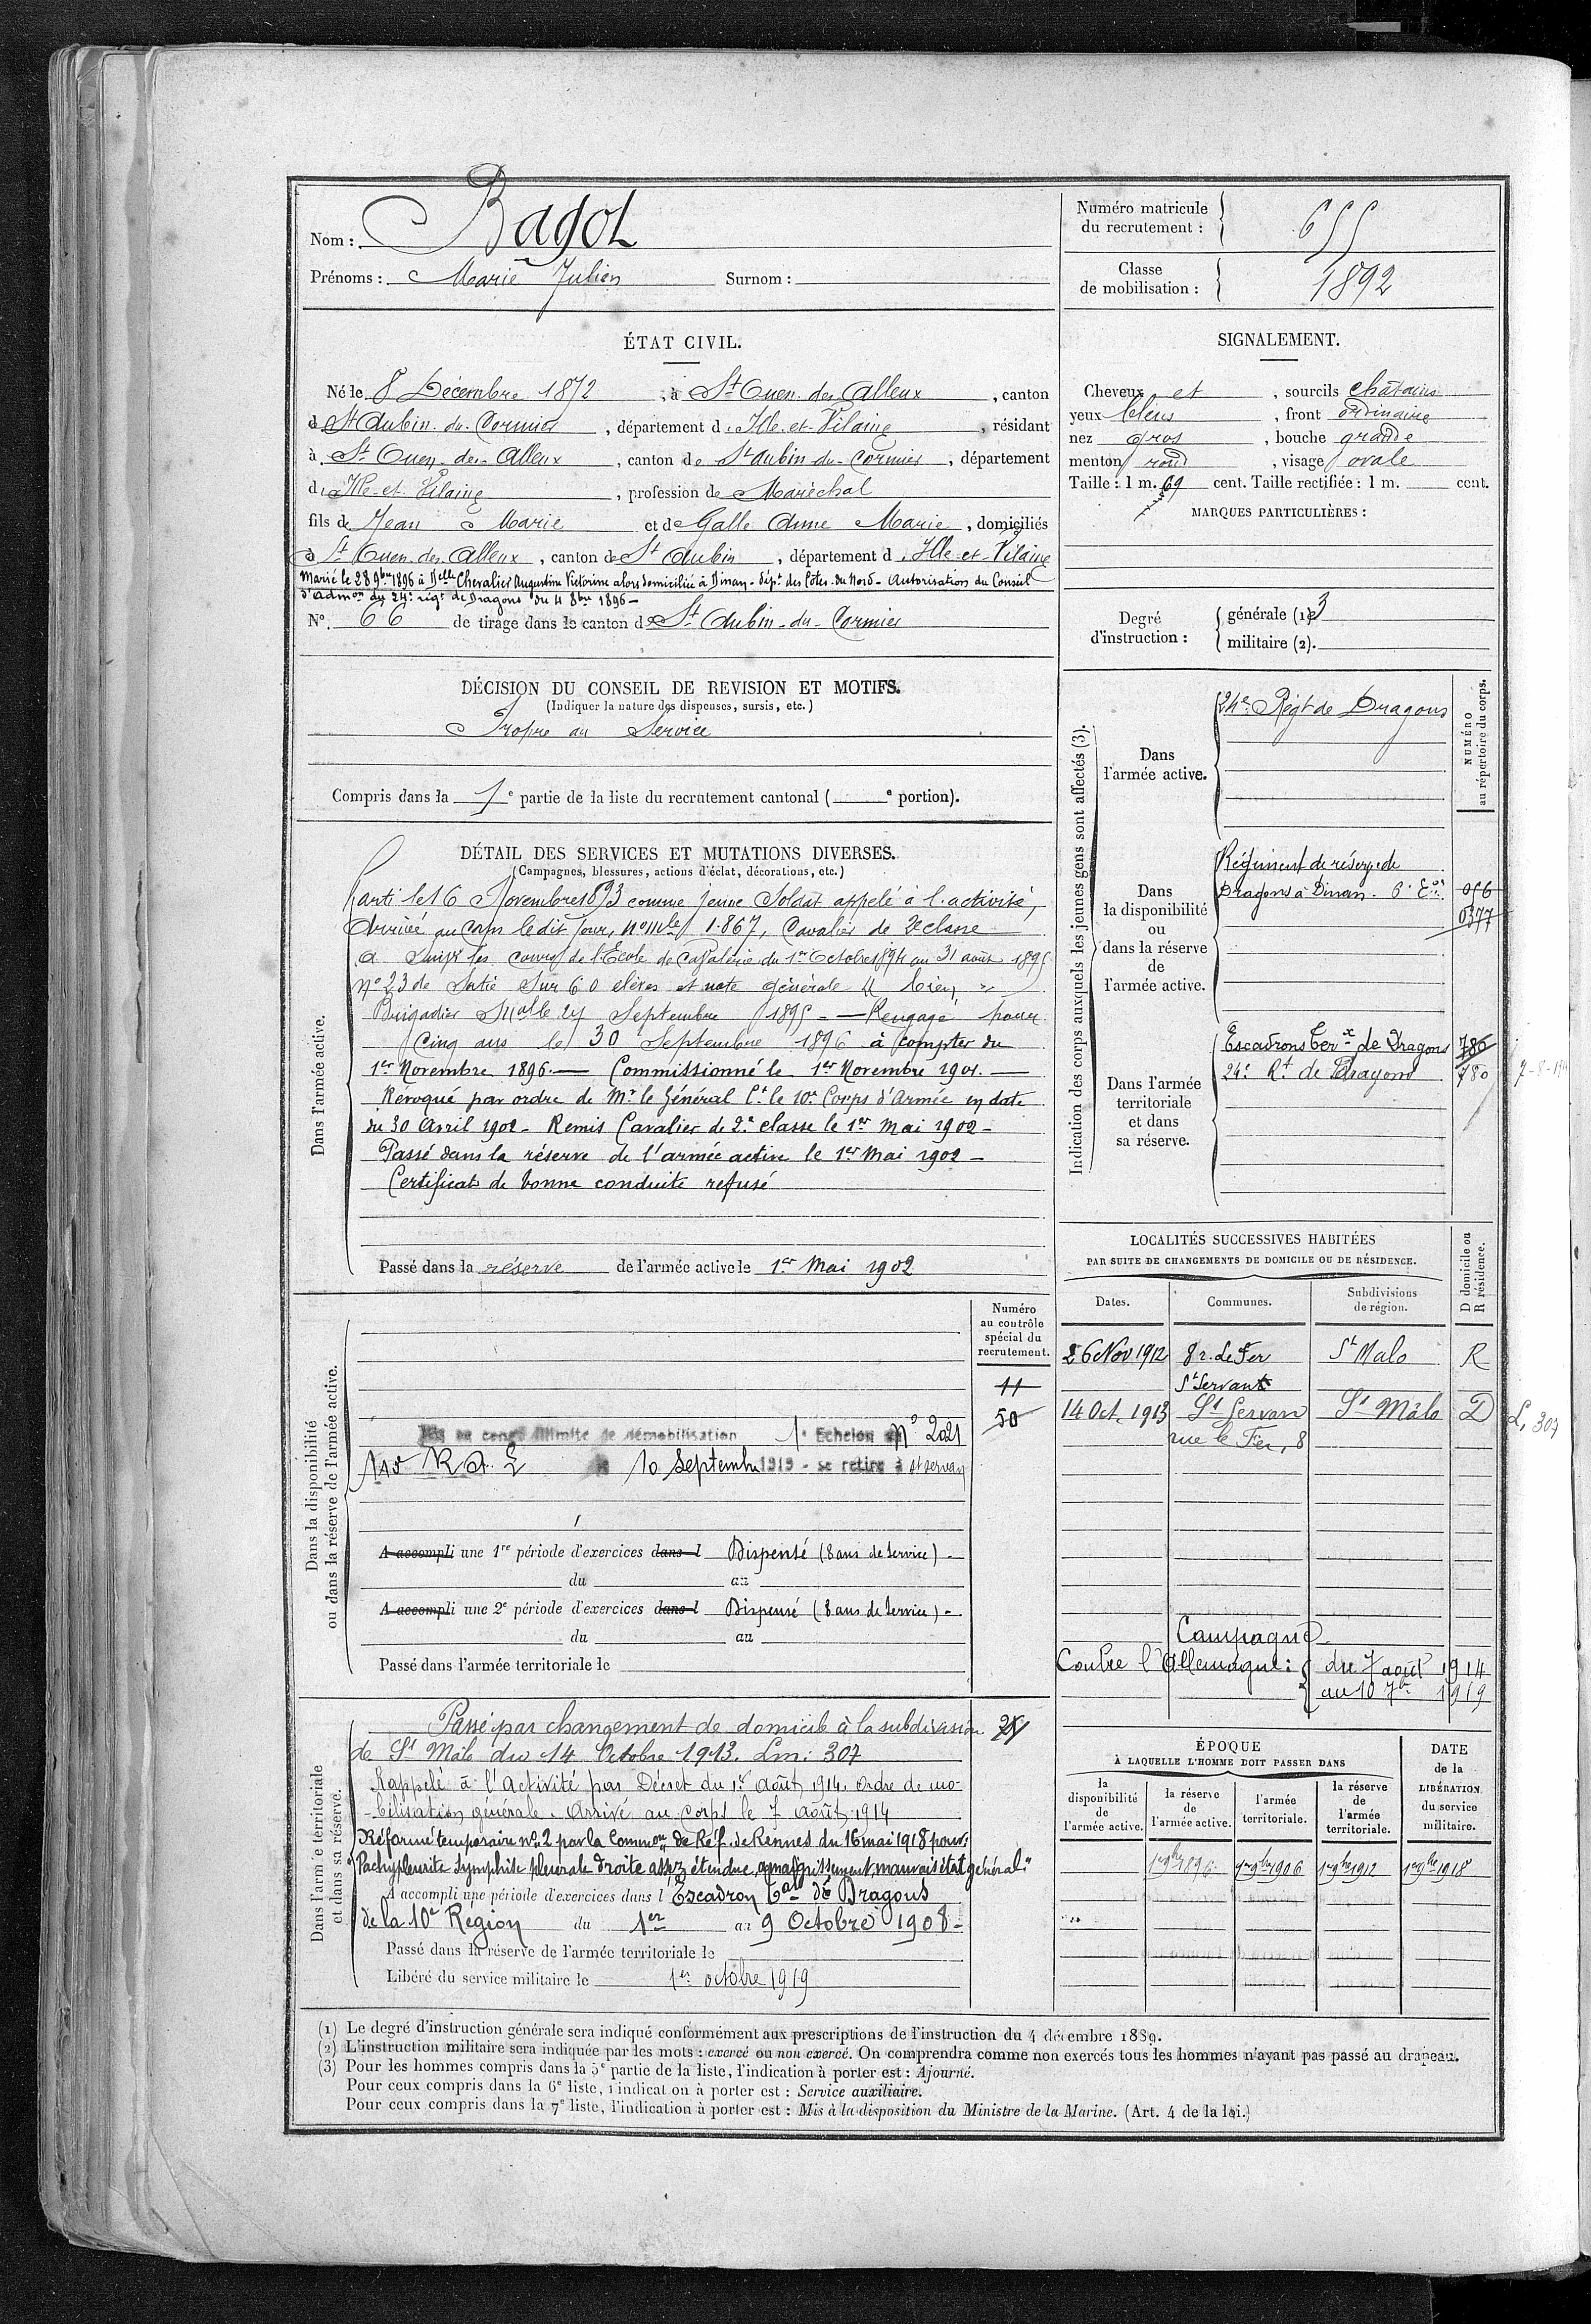 Nom : Bagot
Prénoms : Marie Julien Surnom :
Numéro matricule du recrutement : 655
Classe de mobilisation : 1892
ÉTAT CIVIL.
Né le 8 Décembre 1872, à St Ouen des Alleux, canton
d St Aubin du Cormier, département d Ille-et-Vilaine, résidant
à St Ouen des Alleux, canton de St Aubin du Cormier, département
d Ille et Vilaine, profession de Maréchal
fils de Jean Marie et de Galle Anne Marie, domiciliés
à St Ouen des Alleux, canton de St Aubin, département d Ille-et-Vilaine
Marié le 28 9bre 1896 à Delle Chevalier Augustine Victorine alors domiciliée à Dinan - dépt des Côtes-du-Nord - Autorisation du Conseil
d'admon du 24e régt de Dragons du 4 8bre 1896 -
No. 66 de tirage dans le canton de St Aubin-du-Cormier
SIGNALEMENT.
Cheveux et, sourcils châtains
yeux bleus, front ordinaire
nez gros, bouche grande
menton rond, visage ovale
Taille : 1 m. 69 cent. Taille rectifiée : 1 m. cent.
MARQUES PARTICULIÈRES :
Degré d'instruction : générale (1) 3
militaire (2).
DÉCISION DU CONSEIL DE REVISION ET MOTIFS.
(Indiquer la nature des dispenses, sursis, etc.)
Propre au Service
Compris dans la 1e partie de la liste du recrutement cantonal ( e portion).
DÉTAIL DES SERVICES ET MUTATIONS DIVERSES.
(Campagnes, blessures, actions d'éclat, décorations, etc.)
Dans l'armée active.
Parti le 16 Novembre 1893 comme jeune Soldat appelé à l'activité,
Arrivé au Corps le dit jour, no mle 1.867, Cavalier de 2e classe
a suivi les cours de l'École de Cavalerie du 1er Octobre 1894 au 31 août 1895
no 23 de Sortie sur 60 élèves et note générale " bien "
Brigadier Septembre 1895 - Rengagé pour
cinq ans le 30 Septembre 1896 à compter du
1er Novembre 1896. — Commissionné le 1er Novembre 1901. —
Révoqué par ordre de Mr le Général Ct le 10e Corps d'Armée en date
du 30 Avril 1902 - Remis Cavalier de 2e classe le 1er Mai 1902 -
Passé dans la réserve de l'armée active le 1er Mai 1902 -
Certificat de bonne conduite refusé
Passé dans la réserve de l'armée active le 1er Mai 1902
Indication des corps auxquels les jeunes gens sont affectés (3).
NUMÉRO au répertoire du corps.
Dans l'armée active.
24e Régt de Dragons
Dans la disponibilité ou dans la réserve de l'armée active.
Régiment de réserve de
Dragons à Dinan. 056
0377
Dans l'armée territoriale et dans sa réserve.
Escadrons de Dragons 786
24e Rt de Dragons 780
LOCALITÉS SUCCESSIVES HABITÉES
PAR SUITE DE CHANGEMENTS DE DOMICILE OU DE RÉSIDENCE.
Dates. Communes. Subdivisions de région. D domicile ou R résidence.
26 Nov 1912 8 r. Le Fer St Malo R
St Servan
14 Oct. 1913 St Servan St Mâlo D
rue le Fer, 8
L, 307
Campagne
Contre l'Allemagne : du 7 août 1914
au 10 7bre 1919
Numéro au contrôle spécial du recrutement.
11
50
Dans la disponibilité ou dans la réserve de l'armée active.
Mis en congé illimité de démobilisation 1e Echelon No 2021
10 Septembre 1919 - se retire à St Servan
A accompli une 1re période d'exercices dans l Dispensé (8 ans de service) -
du au
A accompli une 2e période d'exercices dans l Dispensé (8 ans de service) -
du au
Passé dans l'armée territoriale le
Dans l'armée territoriale et dans sa réserve.
Passé par changement de domicile à la subdivision
de St Mâlo du 14 Octobre 1913. Lm : 307
Rappelé à l'Activité par Décret du 1er Août 1914. Ordre de mo-
-bilisation générale. Arrivé au Corps le 7 août 1914
Réformé temporaire no 2 par la Common de Réf. de Rennes du 16 mai 1918 pour :
"Pachypleurite symphise pleurale droite assez étendue, amaigrissement, mauvais état général"
A accompli une période d'exercices dans l Escadron de Dragons
de la 10e Région du 1er au 9 Octobre 1908 -
Passé dans la réserve de l'armée territoriale le
Libéré du service militaire le 1er octobre 1919
ÉPOQUE
À LAQUELLE L'HOMME DOIT PASSER DANS
la disponibilité de l'armée active. la réserve de l'armée active. l'armée territoriale. la réserve de l'armée territoriale.
DATE de la LIBÉRATION du service militaire.
1er 9bre 1896 1er 9bre 1906 1er 9bre 1912 1er 9bre 1918
(1) Le degré d'instruction générale sera indiqué conformément aux prescriptions de l'instruction du 4 décembre 1889.
(2) L'instruction militaire sera indiquée par les mots : exercé ou non exercé. On comprendra comme non exercés tous les hommes n'ayant pas passé au drapeau.
(3) Pour les hommes compris dans la 5e partie de la liste, l'indication à porter est : Ajourné.
Pour ceux compris dans la 6e liste, l'indication à porter est : Service auxiliaire.
Pour ceux compris dans la 7e liste, l'indication à porter est : Mis à la disposition du Ministre de la Marine. (Art. 4 de la loi.)